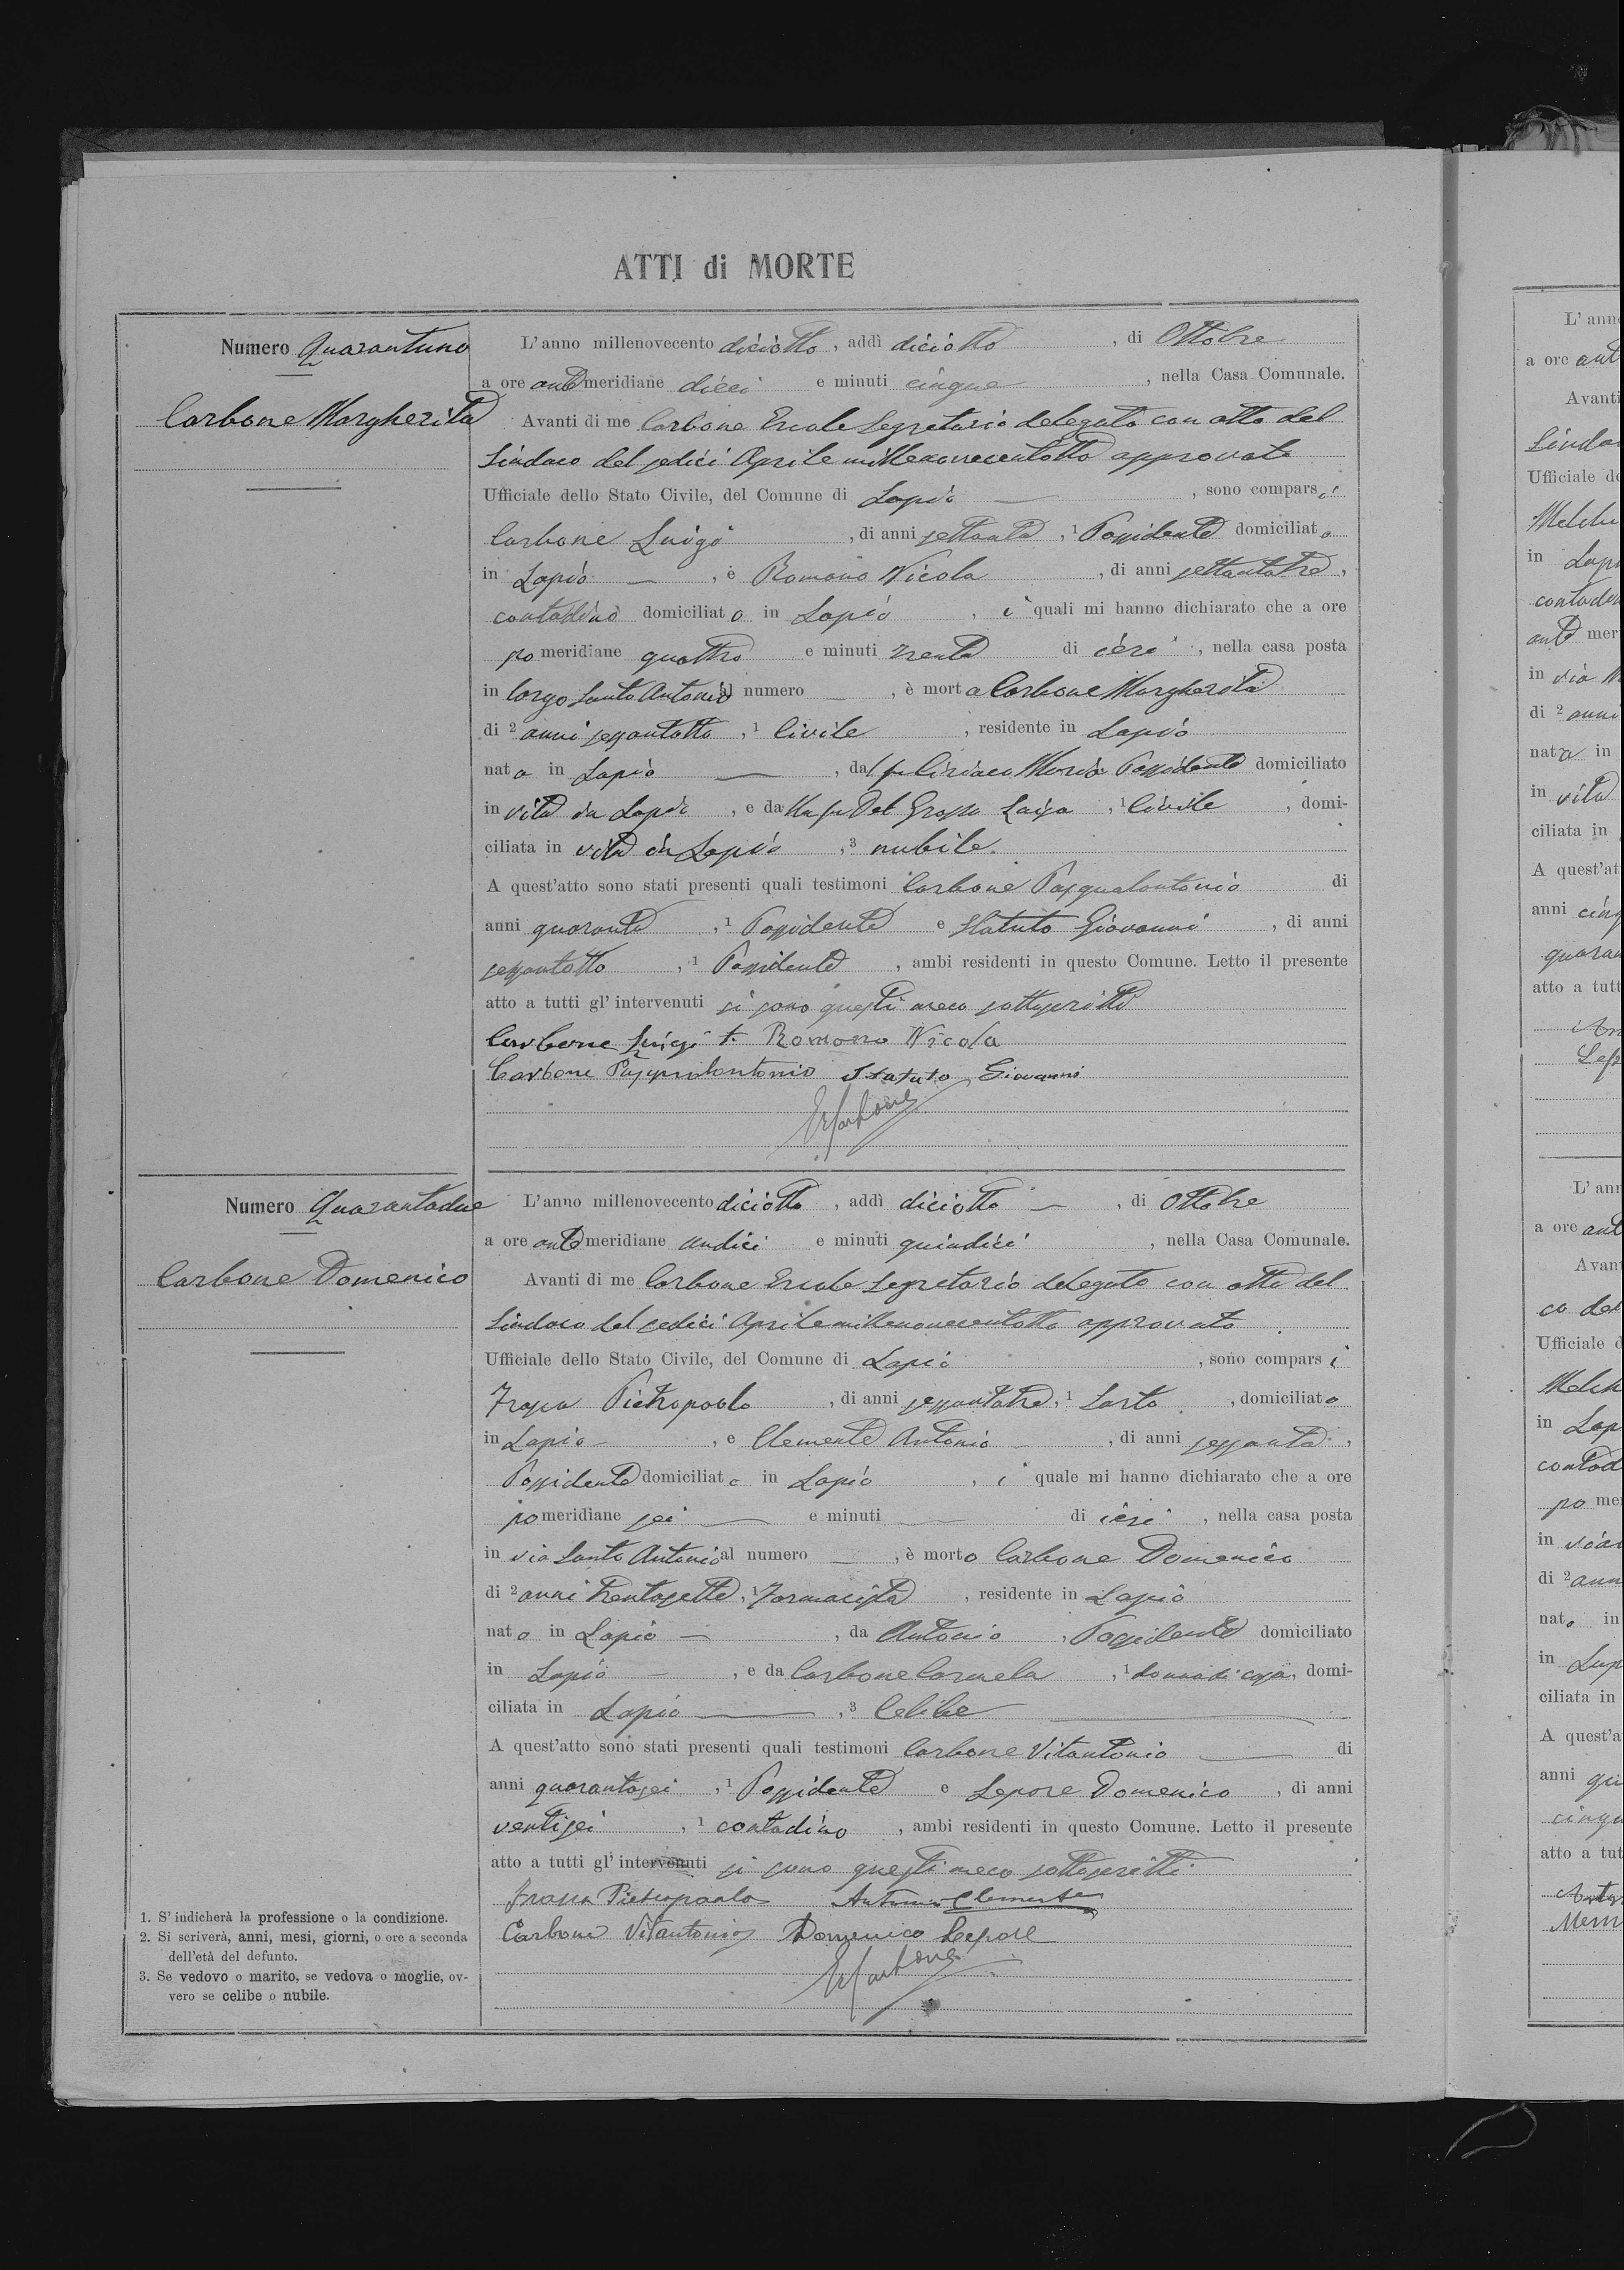 ATTI di MORTE
Numero Quarantuno
Carbone Margherita
L'anno millenovecento diciotto, addì diciotto, di Ottobre
a ore antemeridiane dieci e minuti cinque, nella Casa Comunale.
Avanti di me Carbone Ercole Segretario delegato con atto del
Sindaco del sedici Aprile millenovecentotto approvato
Ufficiale dello Stato Civile, del Comune di Lapio, sono comparsi
Carbone Luigi, di anni settanta, 1 Possidente domiciliato
in Lapio, e Romano Nicola, di anni settantatre,
contadino domiciliato in Lapio, i quali mi hanno dichiarato che a ore
pomeridiane quattro e minuti trenta di ieri, nella casa posta
in largo Santo Antonio al numero, è morta Carbone Margherita
di 2 anni sessantotto, 1 Civile, residente in Lapio
nata in Lapio, dal fu Ciriaco Maria Possidente domiciliato
in vita in Lapio, e da lla fu Del Grosso Luisa, 1 Civile, domi-
ciliata in vita in Lapio, 3 nubile.
A quest'atto sono stati presenti quali testimoni Carbone Pasqualantonio di
anni quaranta, 1 Possidente e Statuto Giovanni, di anni
sessantotto, 1 Possidente, ambi residenti in questo Comune. Letto il presente
atto a tutti gl'intervenuti si sono questi meco sottoscritti
Carbone Luigi t. Romano Nicola
Carbone Pasqualantonio Statuto Giovanni
E Carbone
Numero Quarantadue
Carbone Domenico
L'anno millenovecento diciotto, addì diciotto, di Ottobre
a ore antemeridiane undici e minuti quindici, nella Casa Comunale.
Avanti di me Carbone Ercole Segretario delegato con atto del
Sindaco del sedici Aprile millenovecentotto approvato
Ufficiale dello Stato Civile, del Comune di Lapio, sono comparsi
Trapa Pietropaolo, di anni sessantatre, 1 Sarto, domiciliato
in Lapio, e Clemente Antonio, di anni sessanta,
Possidente domiciliato in Lapio, i quale mi hanno dichiarato che a ore
pomeridiane sei e minuti di ieri, nella casa posta
in via Santo Antonio al numero, è morto Carbone Domenico
di 2 anni trentasette, 1 Farmacista, residente in Lapio
nato in Lapio, da Antonio, Possidente domiciliato
in Lapio, e da Carbone Carmela, 1 donna di casa, domi-
ciliata in Lapio, 3 Celibe
A quest'atto sono stati presenti quali testimoni Carbone Vitantonio di
anni quarantasei, 1 Possidente e Lepore Domenico, di anni
ventisei, 1 contadino, ambi residenti in questo Comune. Letto il presente
atto a tutti gl'intervenuti si sono questi meco sottoscritti
Pietropaolo Antonio Clemente
Carbone Vitantonio Domenico Lepore
E Carbone
1. S'indicherà la professione o la condizione.
2. Si scriverà, anni, mesi, giorni, o ore a seconda
dell'età del defunto.
3. Se vedovo o marito, se vedova o moglie, ov-
vero se celibe o nubile.